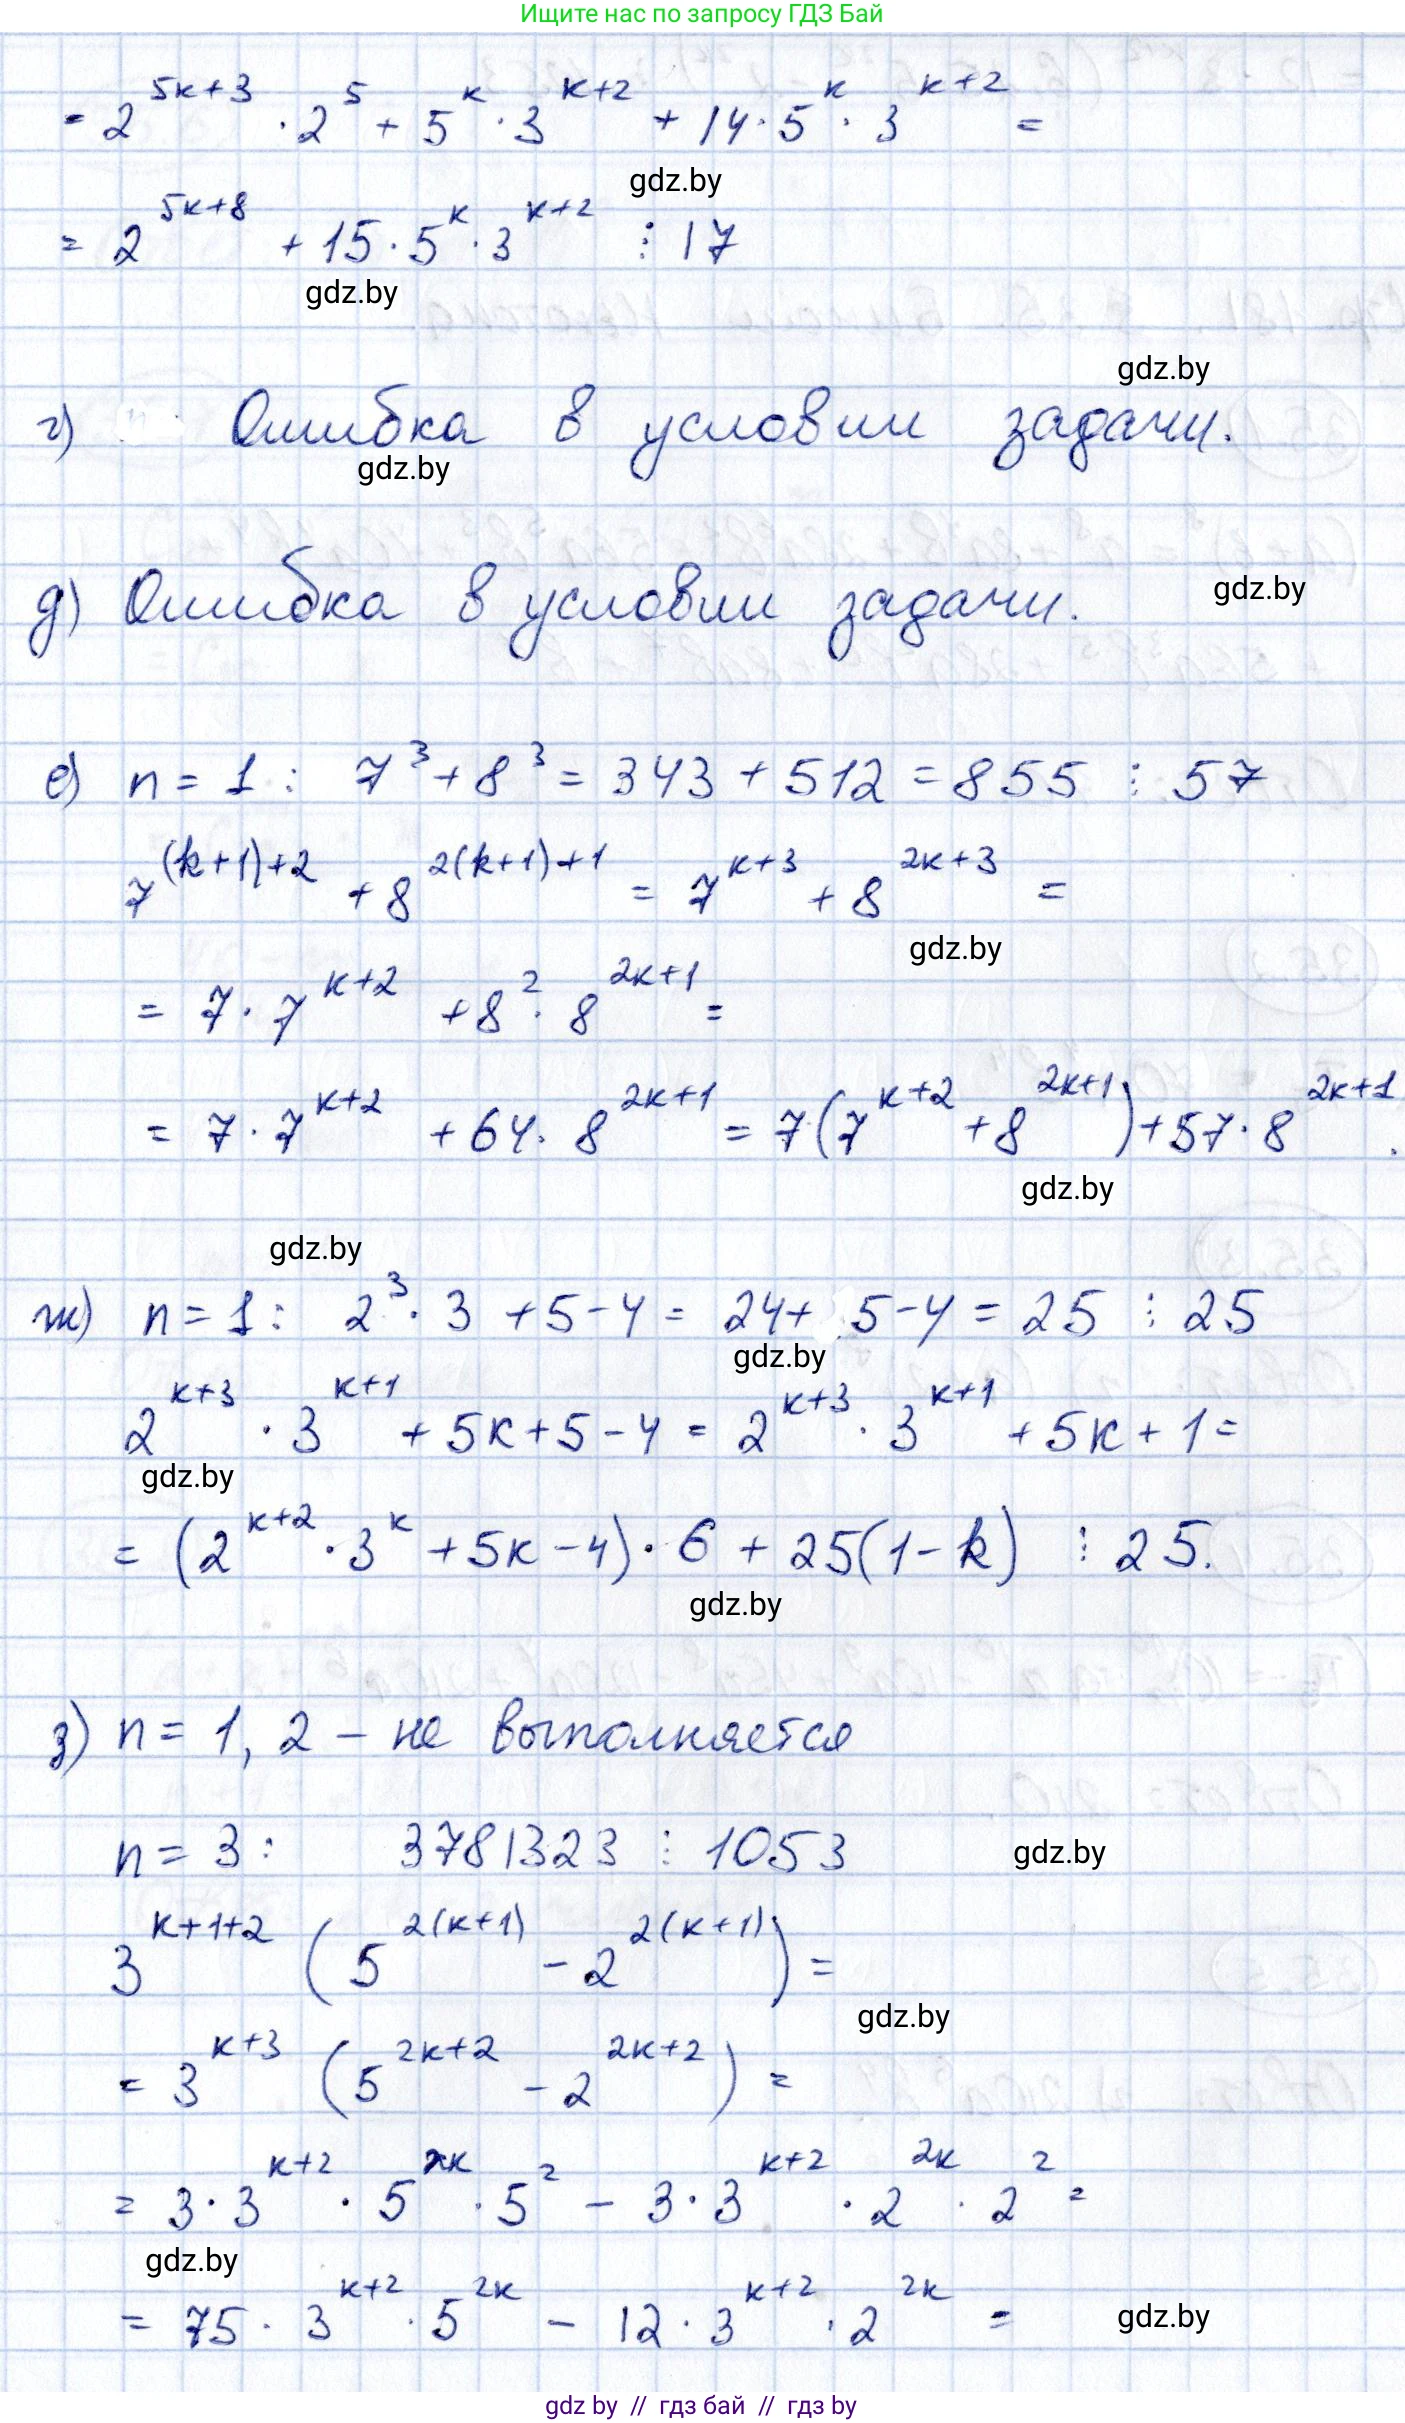 Ищите нас по запросу ГДЗ Бай
= 2^{5к+3} · 2^5 + 5^к · 3^{к+2} + 14 · 5^к · 3^{к+2} =
gdz.by
= 2^{5к+8} + 15 · 5^к · 3^{к+2} ⋮ 17
gdz.by
gdz.by
г) Ошибка в условии задачи.
gdz.by
д) Ошибка в условии задачи.
gdz.by
е) n = 1 : 7^3 + 8^3 = 343 + 512 = 855 ⋮ 57
7^{(k+1)+2} + 8^{2(k+1)+1} = 7^{к+3} + 8^{2к+3} =
gdz.by
= 7 · 7^{к+2} + 8^2 · 8^{2к+1} =
= 7 · 7^{к+2} + 64 · 8^{2к+1} = 7(7^{к+2} + 8^{2к+1}) + 57 · 8^{2к+1}.
gdz.by
gdz.by
ж) n = 1 : 2^3 · 3 + 5 - 4 = 24 + 5 - 4 = 25 ⋮ 25
gdz.by
2^{к+3} · 3^{к+1} + 5к + 5 - 4 = 2^{к+3} · 3^{к+1} + 5к + 1 =
gdz.by
= (2^{к+2} · 3^к + 5к - 4) · 6 + 25(1 - k) ⋮ 25.
gdz.by
з) n = 1, 2 - не выполняется
n = 3 : 3781323 ⋮ 1053
gdz.by
3^{к+1+2} (5^{2(к+1)} - 2^{2(к+1)}) =
gdz.by
= 3^{к+3} (5^{2к+2} - 2^{2к+2}) =
= 3 · 3^{к+2} · 5^{2к} · 5^2 - 3 · 3^{к+2} · 2^{2к} · 2^2 =
gdz.by
= 75 · 3^{к+2} · 5^{2к} - 12 · 3^{к+2} · 2^{2к} =
gdz.by
gdz by // гдз бай // гдз by